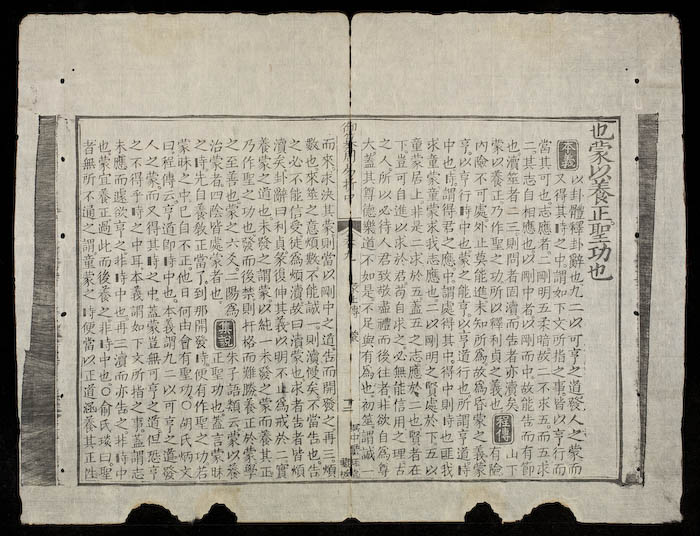 也蒙以養正聖功也
本義 以卦體釋卦辭也九二以可亨之道發人之蒙而
又得其時之中謂如下文所指之事皆以亨行而
當其可也志應者二剛明五柔暗故二不求五而五求
二其志自相應也以剛中者以剛而中故能告而有節
也瀆筮者二三則問者固瀆而告者亦瀆矣 山下
蒙以養正乃作聖之功所以釋利貞之義也 程傳 有險
內險不可處外止莫能進未知所為故為昏蒙之義蒙
亨以亨行時中也蒙之能亨以亨道行也所謂亨道時
中也時謂得君之應中謂處得其中得中則時也匪我
求童蒙童蒙求我志應也二以剛明之賢處於下五以
童蒙居上非是二求於五蓋五之志應於二也賢者在
下豈可自進以求於君苟自求之必無能信用之理古
之人所以必待人君致敬盡禮而後往者非欲自為尊
大蓋其尊德樂道不如是不足與有為也 初筮謂誠一
御纂周易折中 九 彖上傳 蒙 三
而來求決其蒙則當以剛中之道告而開發之再三煩
數也來筮之意煩數不能誠一則瀆慢矣不當告也告
之必不能信受徒為煩瀆故曰瀆蒙也求者告者皆煩
瀆矣卦辭曰利貞彖復伸其義以明不止為戒於二實
養蒙之道也未發之謂蒙以純一未發之蒙而養其正
乃作聖之功也發而後禁則扞格而難勝養正於蒙學
之至善也蒙之六爻二陽為 朱子語類云蒙以養
治蒙者四陰皆處蒙者也 集說 正聖功也蓋言蒙昧
之時先自養教正當了到那開發時便有作聖之功若
蒙昧之中已自不正他日何由會有聖功○胡氏炳文
曰程傳云亨道即時中也本義謂九二以可亨之道發
人之蒙而又得其時之中蓋蒙豈無可亨之道但恐亨
之不得乎時之中耳本義謂如下文所指之事蓋謂志
未應而遽欲亨之非時中也再三瀆而亦告之非時中
也蒙宜養正過此而後養之非時中也○俞氏琰曰聖
者無所不通之謂童蒙之時便當以正道涵養其正性